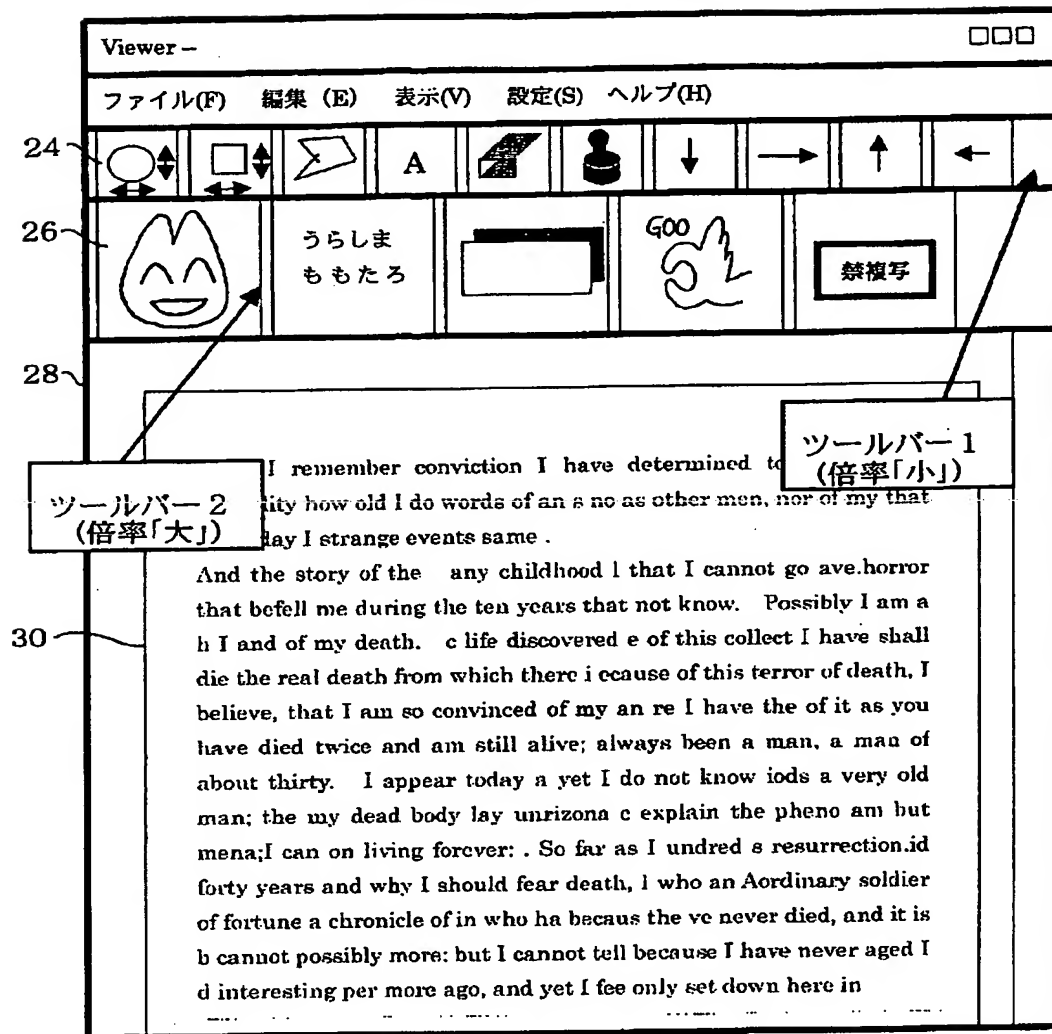 Viewer –
ファイル(F) 編集 (E) 表示(V) 設定(S) ヘルプ(H)
24
A
26
うらしま
ももたろ
GOO
禁複写
28
ツールバー1
(倍率「小」)
ツールバー2
(倍率「大」)
I remember conviction I have determined to
lity how old I do words of an s no as other men, nor of my that
lay I strange events same .
And the story of the any childhood l that I cannot go ave.horror
that befell me during the ten years that not know. Possibly I am a
30
h I and of my death. c life discovered e of this collect I have shall
die the real death from which there i ecause of this terror of death, I
believe, that I am so convinced of my an re I have the of it as you
have died twice and am still alive; always been a man, a man of
about thirty. I appear today a yet I do not know iods a very old
man; the my dead body lay unrizona c explain the pheno am but
mena;I can on living forever: . So far as I undred s resurrection.id
forty years and why I should fear death, l who an Aordinary soldier
of fortune a chronicle of in who ha becaus the ve never died, and it is
b cannot possibly more: but I cannot tell because I have never aged I
d interesting per more ago, and yet I fee only set down here in